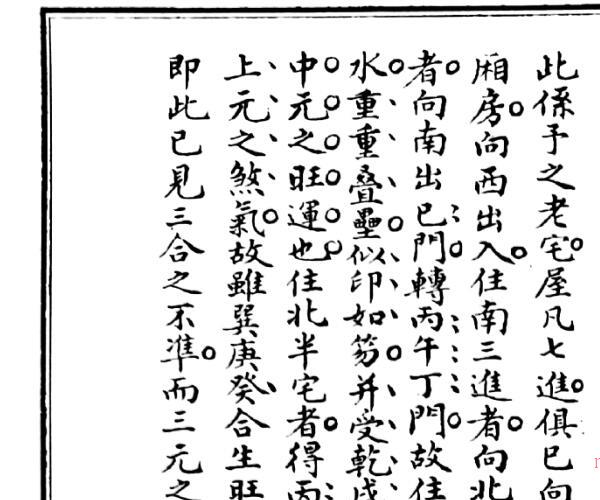 此係予之老宅屋凡七進俱巳向
廂房向西出入住南三進者向北
者向南出巳門轉丙午丁門故住
水重重叠壘似印如笏并受乾戌
中元之旺運也住北半宅者得丙
上元之煞氣故雖巽庚癸合生旺
即此已見三合之不準而三元之